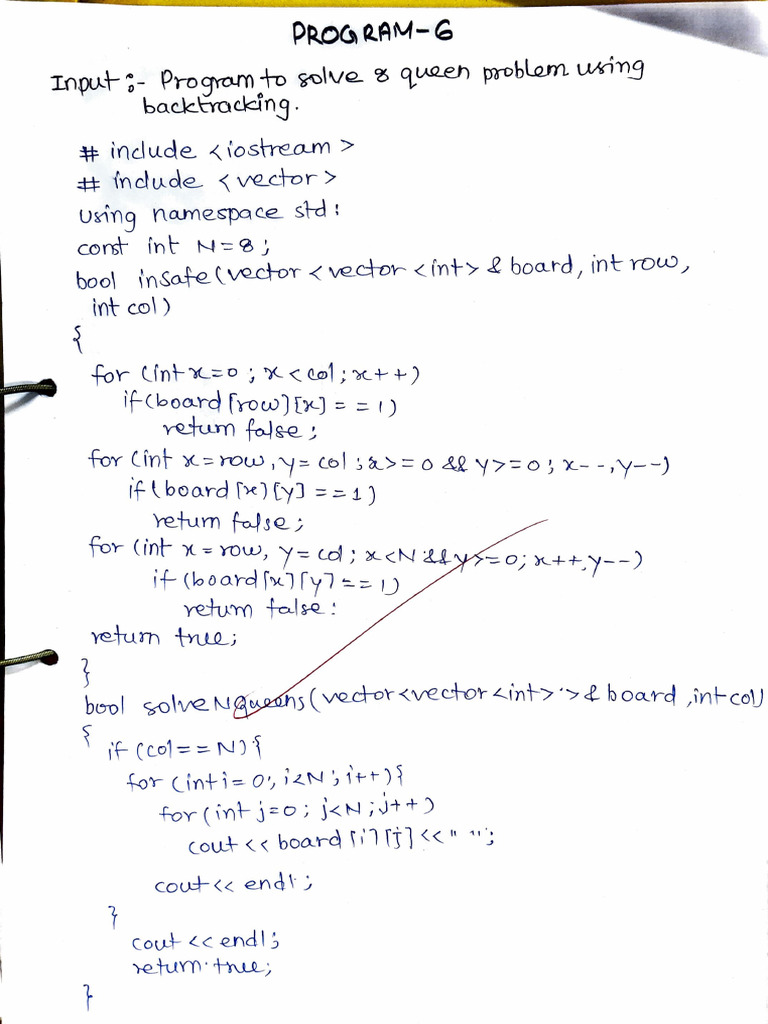 PROGRAM-6
Input :- Program to solve 8 queen problem using
backtracking.
# include <iostream>
# include <vector>
using namespace std:
const int N=8;
bool insafe(vector<vector<int>& board, int row,
int col)
{
for (int x=0; x<col; x++)
if(board[row][x]==1)
return false;
for (int x=row, y=col; x>=0 && y>=0; x--,y--)
if(board[x][y]==1)
return false;
for (int x=row, y=col; x<N && y>=0; x++,y--)
if (board[x][y]==1)
return false:
return true;
}
bool solveNQueens(vector<vector<int>>& board, int col)
{
if (col==N){
for (int i=0; i<N; i++){
for (int j=0; j<N; j++)
cout<<board[i][j]<<" ";
cout<<endl;
}
cout<<endl;
return true;
}